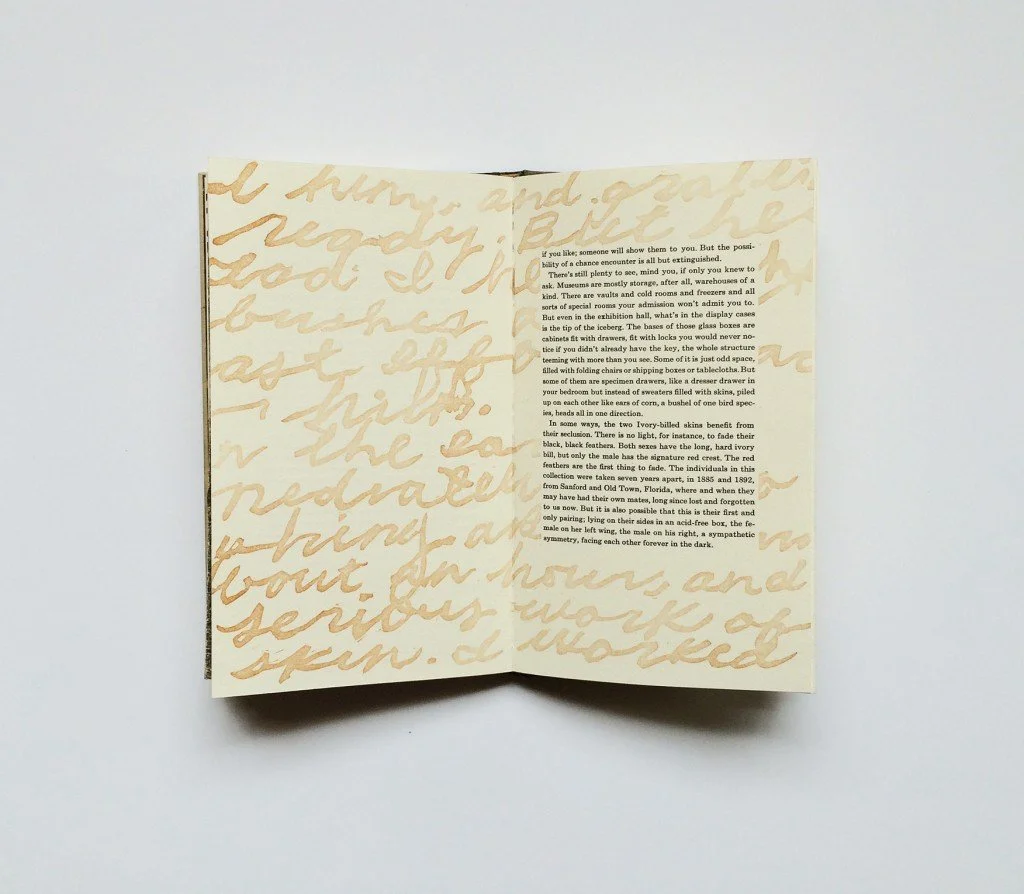 and
ready. But he
I
bushes
the
bout an hour, and
serious work of
skin. I worked
if you like; someone will show them to you. But the possi-
bility of a chance encounter is all but extinguished.
There's still plenty to see, mind you, if only you knew to
ask. Museums are mostly storage, after all, warehouses of a
kind. There are vaults and cold rooms and freezers and all
sorts of special rooms your admission won't admit you to.
But even in the exhibition hall, what's in the display cases
is the tip of the iceberg. The bases of those glass boxes are
cabinets fit with drawers, fit with locks you would never no-
tice if you didn't already have the key, the whole structure
teeming with more than you see. Some of it is just odd space,
filled with folding chairs or shipping boxes or tablecloths. But
some of them are specimen drawers, like a dresser drawer in
your bedroom but instead of sweaters filled with skins, piled
up on each other like ears of corn, a bushel of one bird spec-
ies, heads all in one direction.
In some ways, the two Ivory-billed skins benefit from
their seclusion. There is no light, for instance, to fade their
black, black feathers. Both sexes have the long, hard ivory
bill, but only the male has the signature red crest. The red
feathers are the first thing to fade. The individuals in this
collection were taken seven years apart, in 1885 and 1892,
from Sanford and Old Town, Florida, where and when they
may have had their own mates, long since lost and forgotten
to us now. But it is also possible that this is their first and
only pairing; lying on their sides in an acid-free box, the fe-
male on her left wing, the male on his right, a sympathetic
symmetry, facing each other forever in the dark.